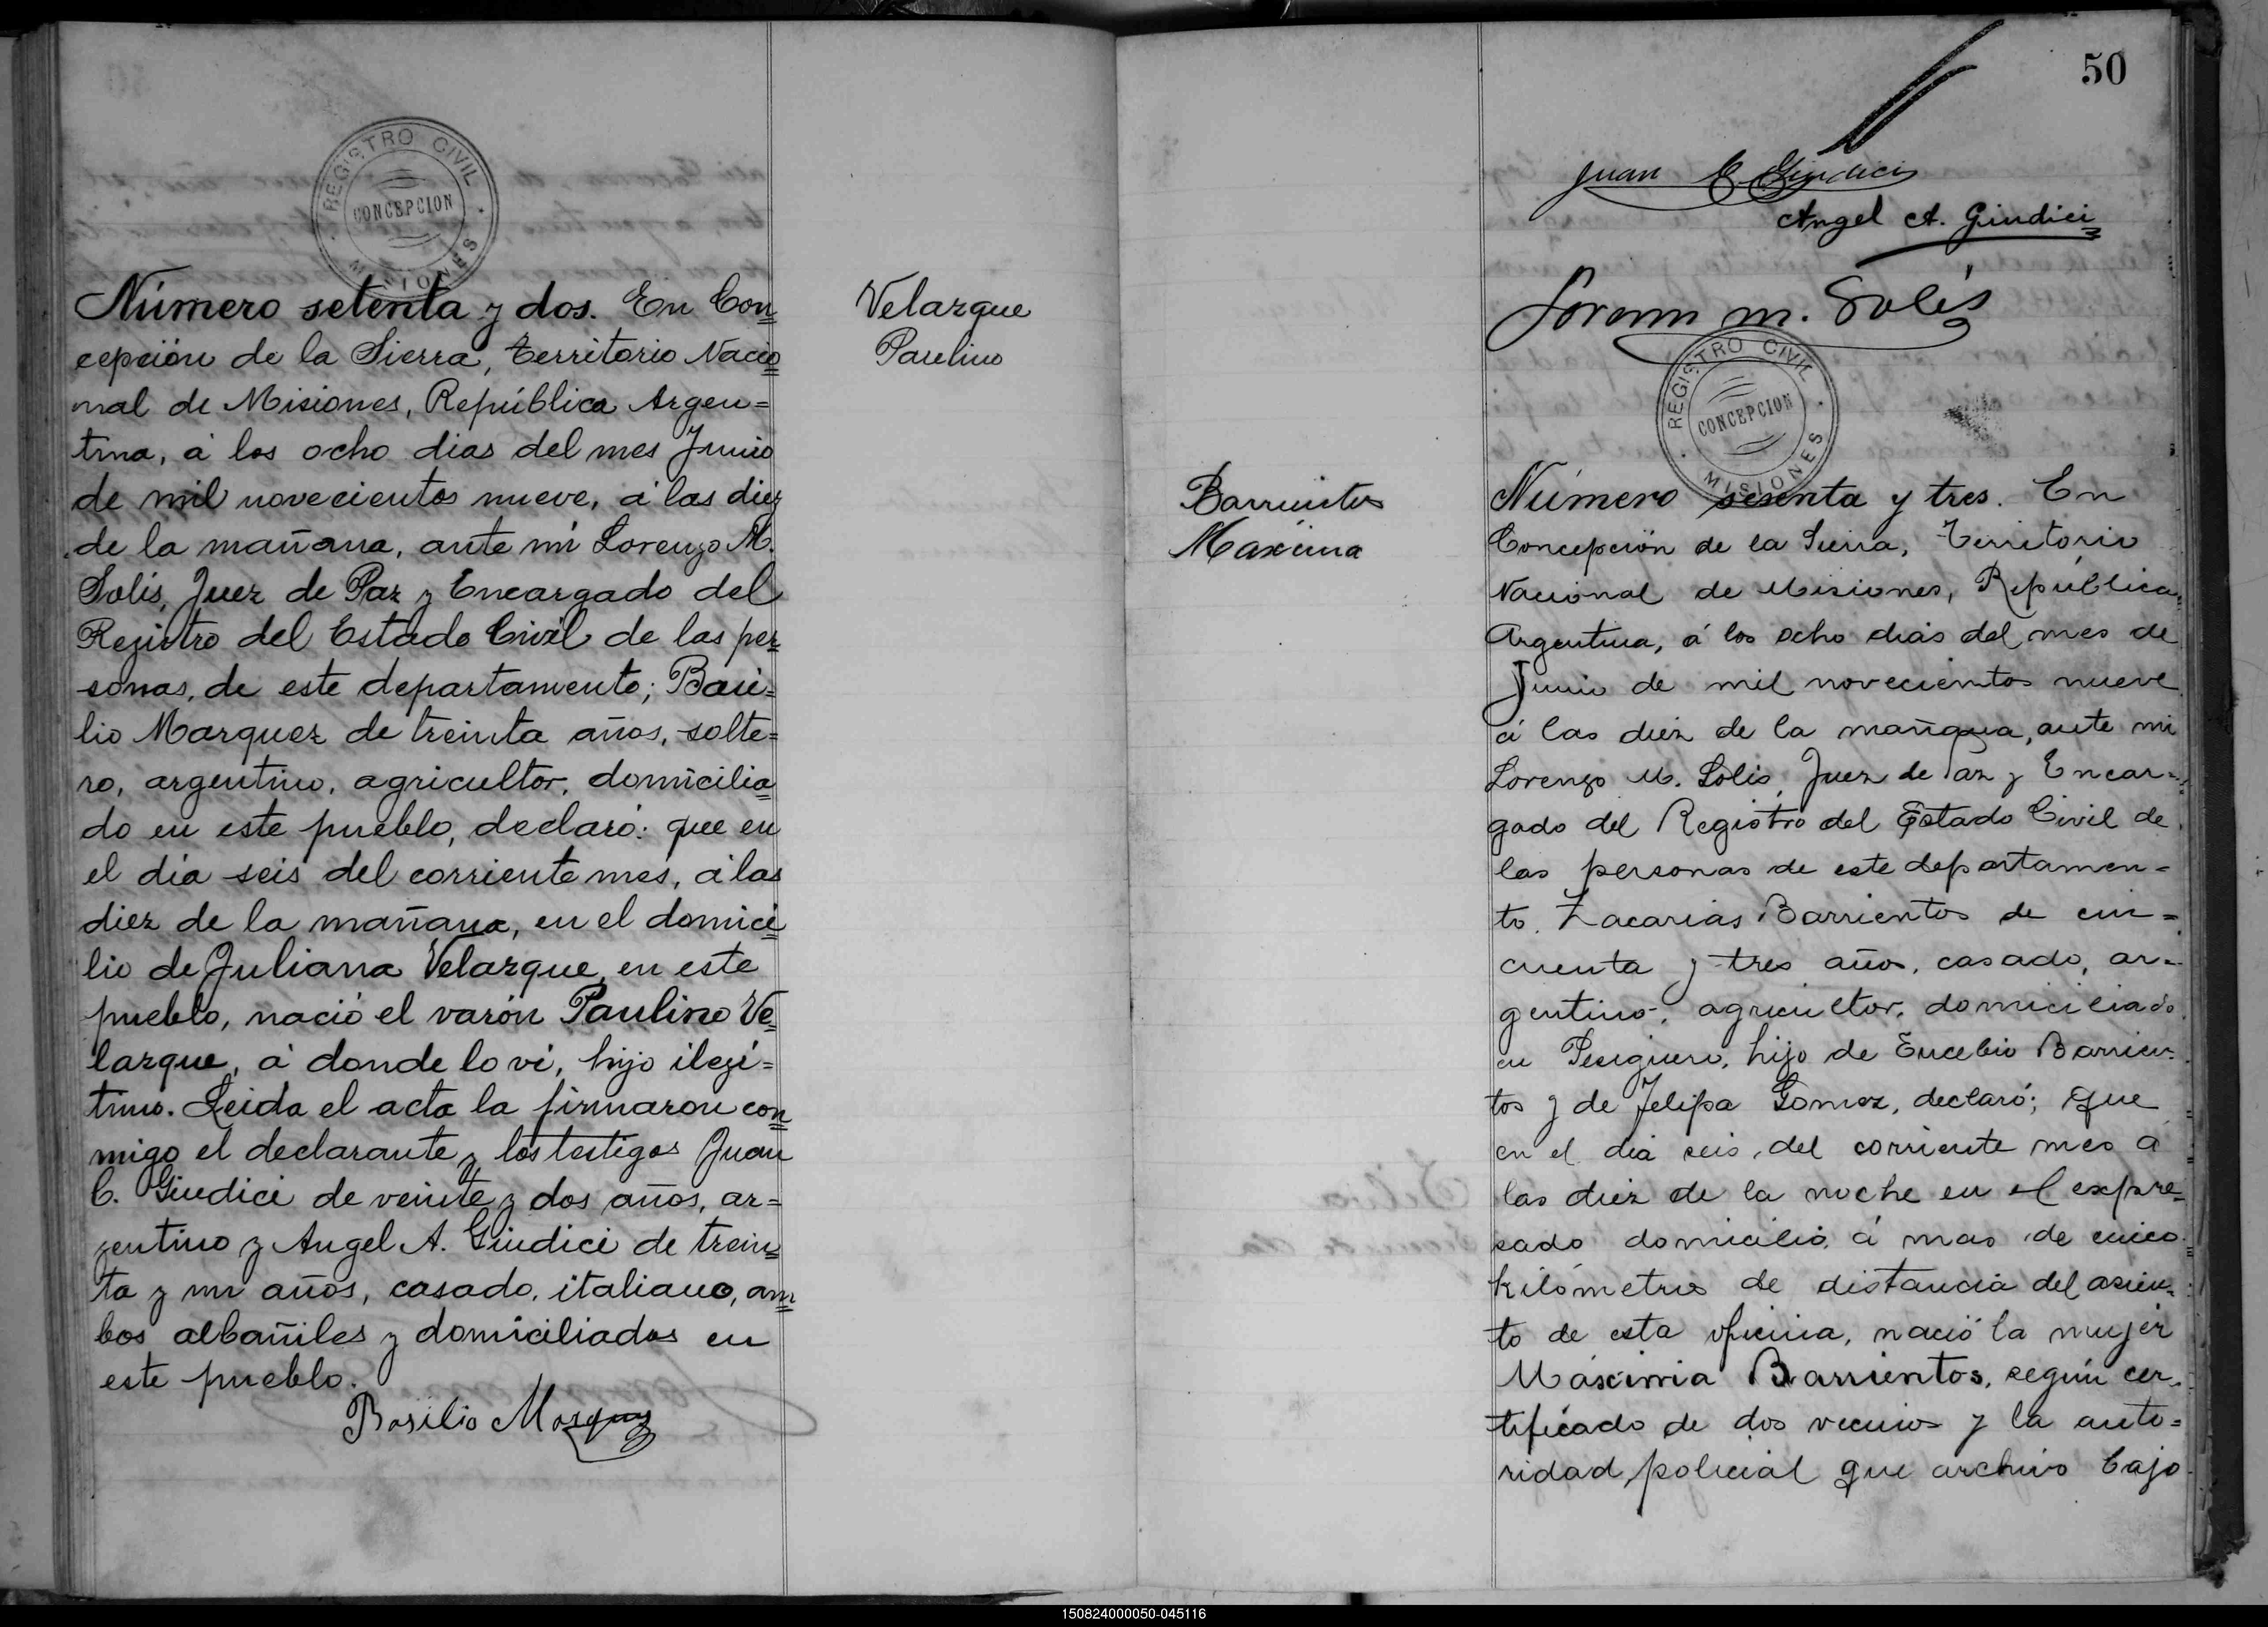 REGISTRO CIVIL
CONCEPCION
MISIONES
Número setenta y dos. En Con=
cepción de la Sierra, territorio Nacio=
nal de Misiones, República Argen=
tina, á los ocho dias del mes Junio
de mil novecientos nueve, á las diez
de la mañana, ante mi Lorenzo M.
Solis, Juez de Paz y Encargado del
Registro del Estado Civil de las per=
sonas, de este departamento; Basi=
lio Marquez de treinta años, solte=
ro, argentino, agricultor, domicilia=
do en este pueblo, declaró: que en
el día seis del corriente mes, á las
diez de la mañana, en el domici=
lio de Juliana Velazque, en este
pueblo, nació el varón Paulino Ve=
lazque, á donde lo vi, hijo ilegí=
timo. Leida el acta la firmaron con=
migo el declarante y los testigos Juan
C. Giudici de veinte y dos años, ar=
gentino y Angel A. Giudici de trein=
ta y un años, casado, italiano, am=
bos albañiles y domiciliados en
este pueblo.
Basilio Marquez
Velazque
Paulino
50
Juan C Giudici
Angel A. Giudici
Lorenzo M. Solís
REGISTRO CIVIL
CONCEPCION
MISIONES
Barrientos
Maxima
Número setenta y tres. En
Concepción de la Sierra, Territorio
Nacional de Misiones, República
Argentina, á los ocho dias del mes de
Junio de mil novecientos nueve
á las diez de la mañana, ante mi
Lorenzo M. Solis, Juez de Paz y Encar=
gado del Registro del Estado Civil de
las personas de este departamen=
to, Zacarias Barrientos de cin=
cuenta y tres años, casado, ar=
gentino, agricultor, domiciliado
en Persiguero, hijo de Eucebio Barrien=
tos y de Felipa Gomez, declaró; que
en el dia seis, del corriente mes á
las diez de la noche en el expre=
sado domicilio, á mas de cinco
kilómetros de distancia del asien=
to de esta oficina, nació la mujer
Máxima Barrientos, según cer=
tificado de dos vecinos y la auto=
ridad policial que archivo bajo
150824000050-045116